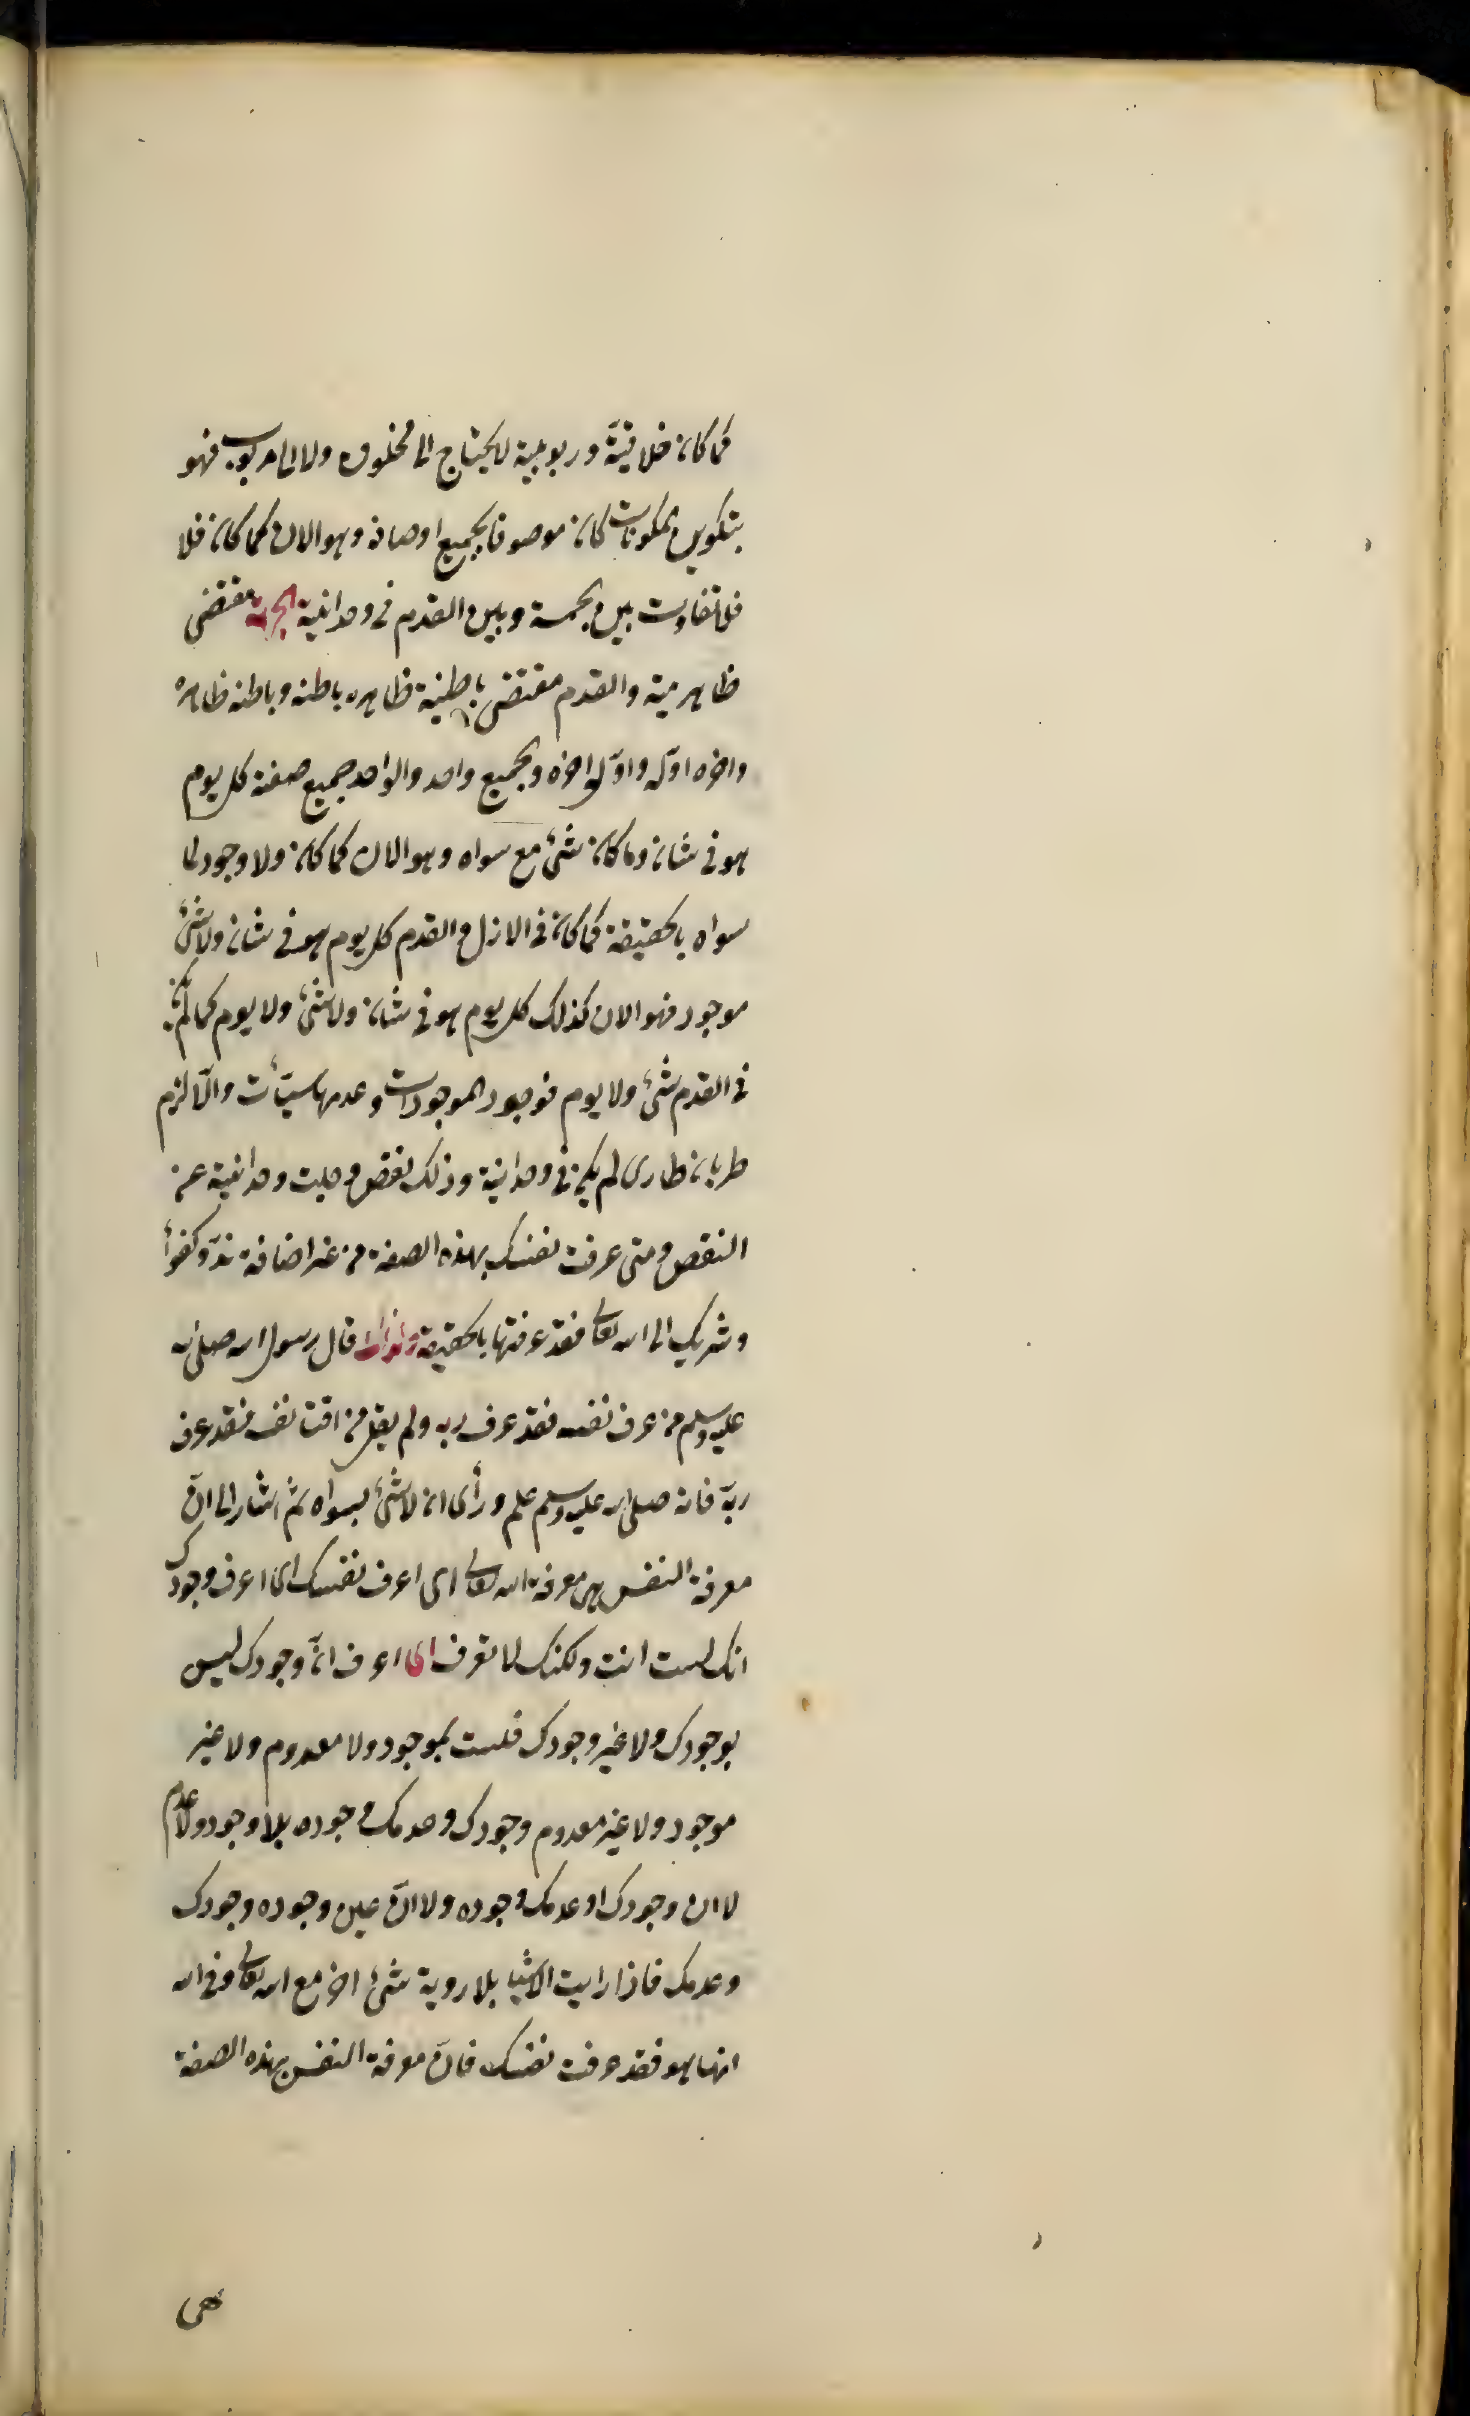 كما كان خلاقية وربوبية لا يحتاج الى مخلوق ولا الى مربوب فهو
بتكوين المكونات كان موصوفا بجميع اوصافه وهو الان كما كان فلا
فلا تفاوت بين وبين القدم في وحدانيته مقتضى
ظاهريته والقدم مقتضى باطنيته ظاهره باطنه وباطنه ظاهره
واخره اوّله واوّله اخره والجميع واحد والواحد جميع صفته كل يوم
هو في شان وما كان شئ مع سواه وهو الان كما كان ولا وجود لما
سواه بالحقيقة كما كان في الازل والقدم كل يوم هو في شان ولا شئ
موجود فهو الان كذلك كل يوم هو في شان ولا شئ ولا يوم كما لم يكن
في القدم شئ ولا يوم فوجود الموجودات وعدمها سيّان والّا لزم
طريان طارى لم يكن في وحدانية وذلك نقص وجلت وحدانيته عن
النقص ومتى عرفت نفسك بهذه الصفة من غير اضافة ندّ وكفوأ
وشريك الى الله تعالى فقد عرفتها بالحقيقة ولذلك قال رسول الله صلى الله
عليه وسلم من عرف نفسه فقد عرف ربه ولم يقل من افنى نفسه فقد عرف
ربّه فانه صلى الله عليه وسلم علم ورأى ان لا شئ سواه ثم اشار الى انّ
معرفة النفس هى معرفة الله تعالى اى اعرف نفسك اى اعرف وجودك
انك لست انت ولكنك لا تعرف اى اعرف انّ وجودك ليس
بوجودك ولا غير وجودك فلست بموجود ولا معدوم ولا غير
موجود ولا غير معدوم وجودك وعدمك وجوده بلا وجود ولا عدم
لا ان وجودك او عدمك وجوده ولا انّ عين وجوده وجودك
وعدمك فاذا رايت الاشيا بلا روية شئ اخر مع الله تعالى وفى الله
انها هو فقد عرفت نفسك فانّ معرفة النفس بهذه الصفة
هى